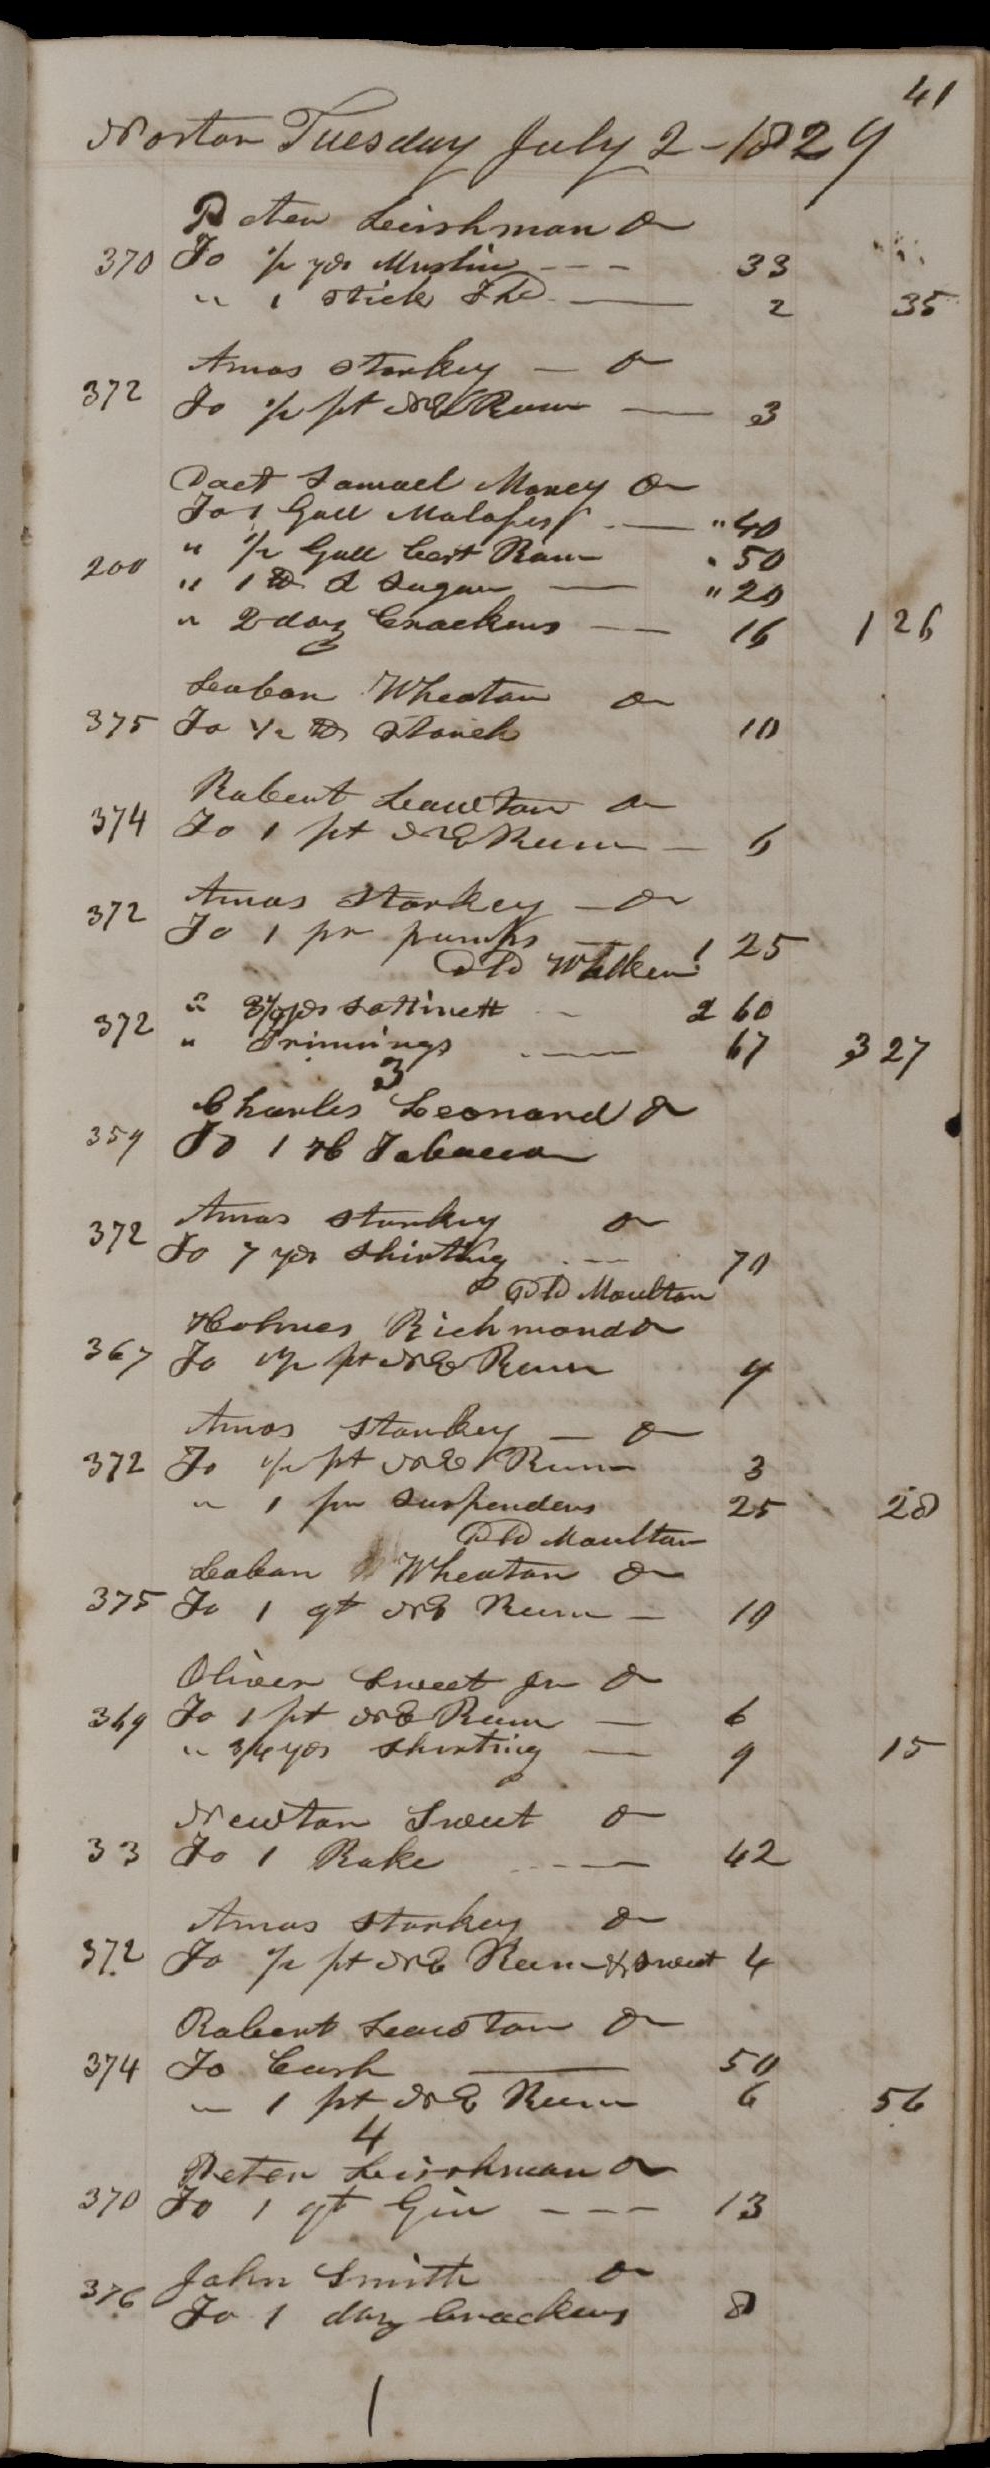 41
Norton Tuesday July 2 - 1829
Peter Leishman Dr
370 To 1/2 yds Muslin - - - 33
" 1 stick Thd — 2 35
Amos Starkey — Dr
372 To 1/2 pt N E Rum — 3
Doct Samuel Morey Dr
To 1 Gall Molasses — " 40
" 1/2 Gall Cert Rum " 50
200 " 1 lb L Sugar — " 20
" 2 doz Crackers — 16 1 26
Laban Wheaton Dr
375 To 1/2 lb Starch 10
Robert Lawton Dr
374 To 1 pt N E Rum — 6
Amos Starkey — Dr
372 To 1 pr pumps — 1 25
Dld
" yds Sattinett - 2 60
372 " Trimings — 67 3 27
3
Charles Leonard Dr
359 To 1 lb Tobacco
Amos Starkey Dr
372 To 7 yds Shirting - - - 70
Dld Moulton
Holmes Richmond Dr
367 To 1 1/2 pt N E Rum 9
Amos Starkey — Dr
372 To 1/2 pt N E Rum 3
" 1 pr Suspenders 25 28
Dld Moulton
Laban Wheaton Dr
375 To 1 qt N E Rum — 10
Oliver Sweet Jr Dr
369 To 1 pt N E Rum — 6
" 3/4 yds Shirting — 9 15
Newton Sweet Dr
33 To 1 Rake - - — 42
Amos Starkey Dr
372 To 1/2 pt N E Rum & Sweet 4
Robert Lawton Dr
374 To Cash — 50
" 1 pt N E Rum 6 56
4
Peter Leishman Dr
370 To 1 qt Gin - - - 13
John Smith Dr
376 To 1 doz Crackers 8